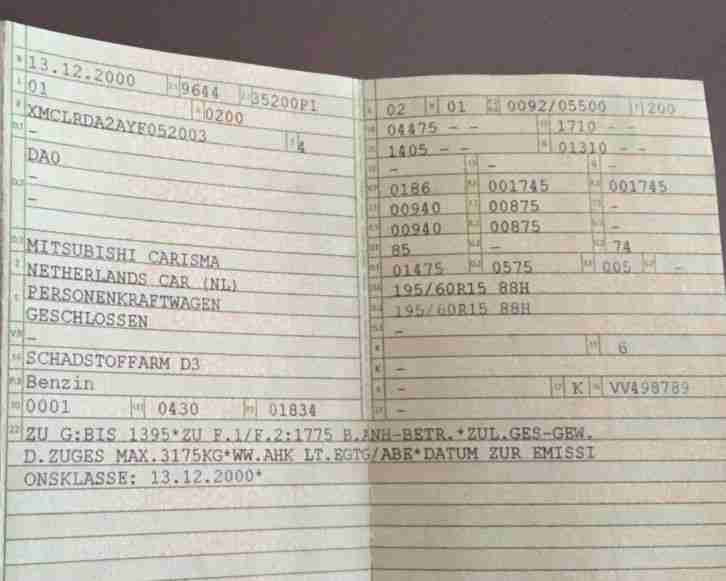 13.12.2000 9644 35200P1
01 0200
XMCLRDA2AYF052003 4
-
DA0
-
-
MITSUBISHI CARISMA
NETHERLANDS CAR (NL)
PERSONENKRAFTWAGEN
GESCHLOSSEN
-
SCHADSTOFFARM D3
Benzin
0001 0430 01834
02 01 0092/05500 200
04475 - - 1710 - -
1405 - - 01310 - -
- - -
0186 001745 001745
00940 00875 -
00940 00875 -
85 - 74
01475 0575 005 -
195/60R15 88H
195/60R15 88H
-
6
-
- K VV498789
-
22 ZU G:BIS 1395*ZU F.1/F.2:1775 B.ANH-BETR.*ZUL.GES-GEW.
D.ZUGES MAX.3175KG*WW.AHK LT.EGTG/ABE*DATUM ZUR EMISSI
ONSKLASSE: 13.12.2000*